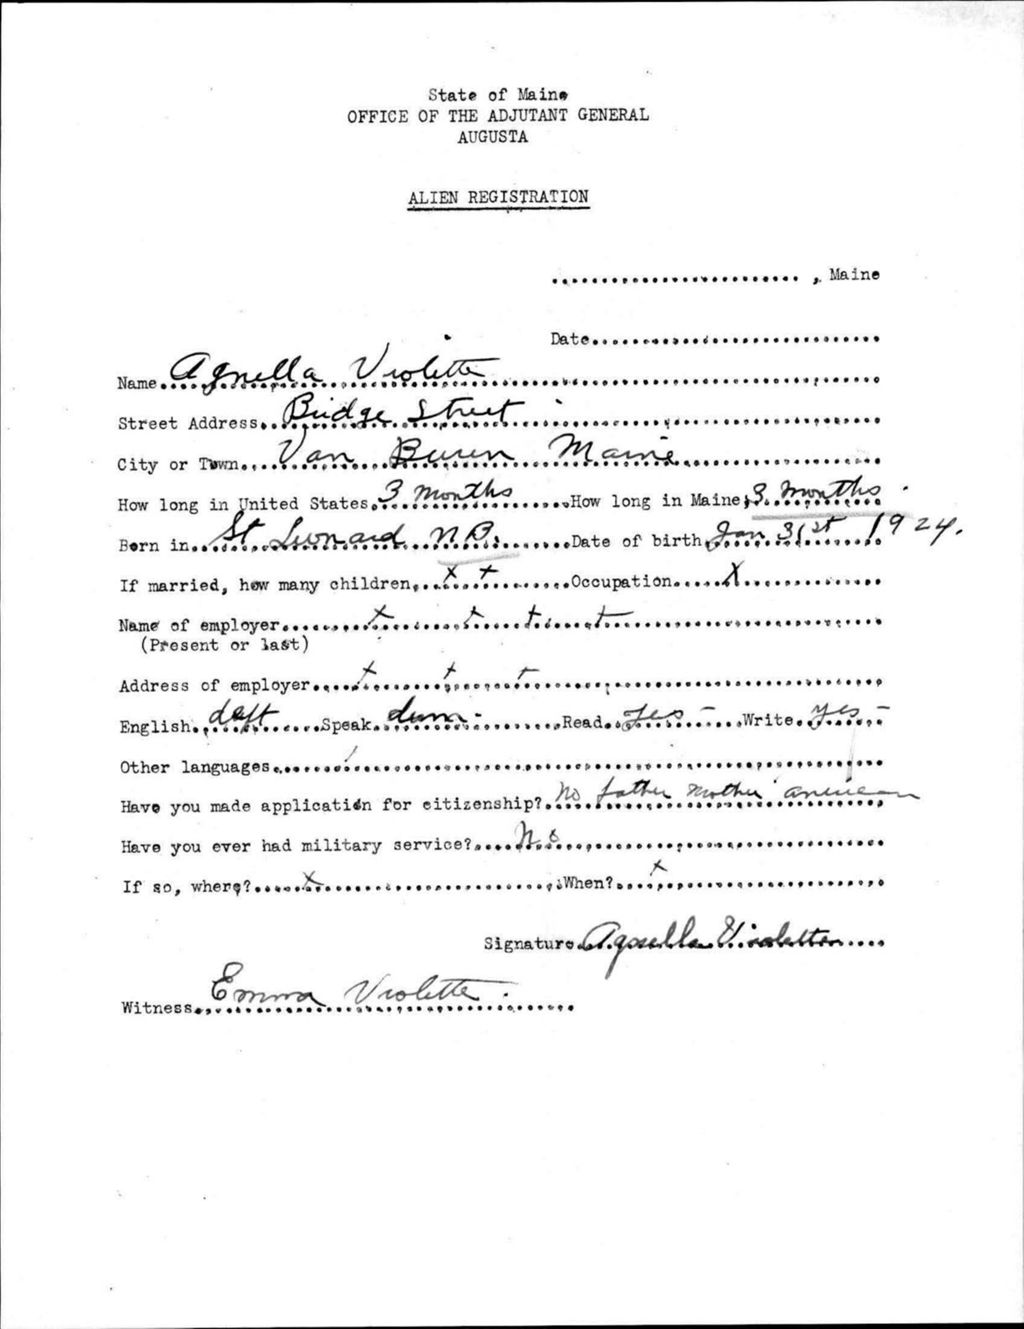 State of Maine
OFFICE OF THE ADJUTANT GENERAL
AUGUSTA
ALIEN REGISTRATION
........................ , Maine
Date............................
Name Agnella Violette
Street Address Bridge Street
City or Town Van Buren Maine
How long in United States 3 months How long in Maine 3 months
Born in St Leonard N.B. Date of birth Jan 31st 1924.
If married, how many children x x Occupation X
Name of employer x x x x
(Present or last)
Address of employer x x x
English deft Speak dum- Read yes - Write yes -
Other languages /
Have you made application for citizenship? No father mother american
Have you ever had military service? No
If so, where? x When? x
Signature Agnella Violette
Witness Emma Violette.